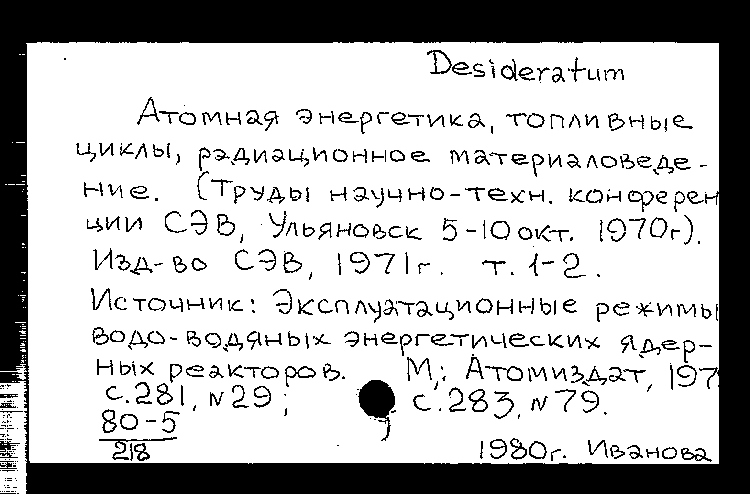 Desideratum
Атомная энергетика, топливные
циклы, радиационное материаловеде-
ние. (Труды научно-техн. конферен
ции СЭВ, Ульяновск 5-10 окт. 1970г).
Изд-во СЭВ, 1971г. т. 1-2.
Источник: Эксплуатационные режимы
водо-водяных энергетических ядер-
ных реакторов. М,: Атомиздат, 197
с.281, N29; с.283, N79.
80-5
218
1980г. Иванова